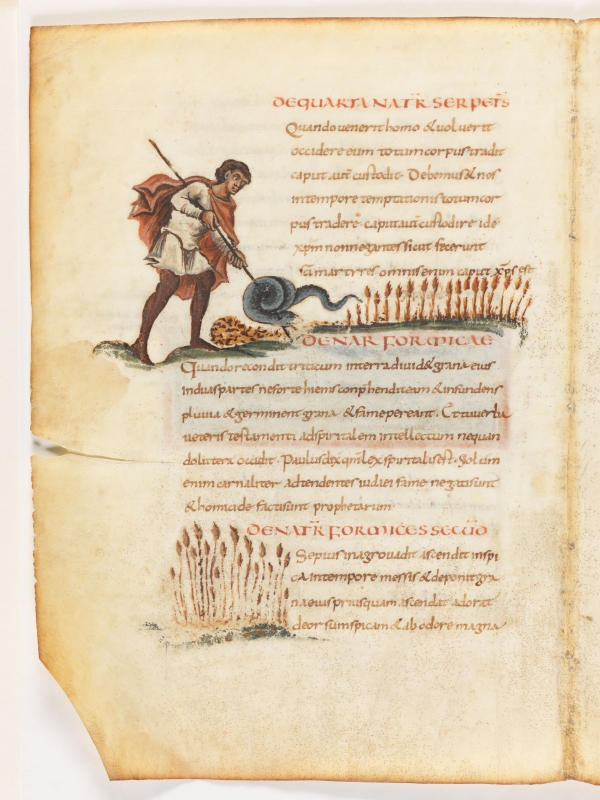 DE QUARTA NATR SERPETS
Quando venerit homo & voluerit
occidere eum totum corpus tradit
caput aut custodit. Debemus & nos
in tempore temptationis totum cor
pus tradere caput aut custodire idē
xpm non negantes sicut fecerunt
scī martyres omnis enim caput xps est
DE NAR FORMICAE
Quando recondit triticum in terra dividet grana eius
in duas partes ne forte hiems conprehendat eam & infundens
pluvia & germinent grana & fame pereant. Et tu verba
veteris testamenti ad spiritalem intellectum ne quan
do littera occidit. Paulus dix qm lex spiritalis est. Solum
enim carnaliter adtendentes iudaei fame negati sunt
& homicidę facti sunt prophetarum
DE NATR FORMICES SECUDO
Sepius in agro vadit ascendit in spi
ca in tempore messis & deponit gra
na eius priusquam ascendat adorat
deorsum spicam & ab odore magna